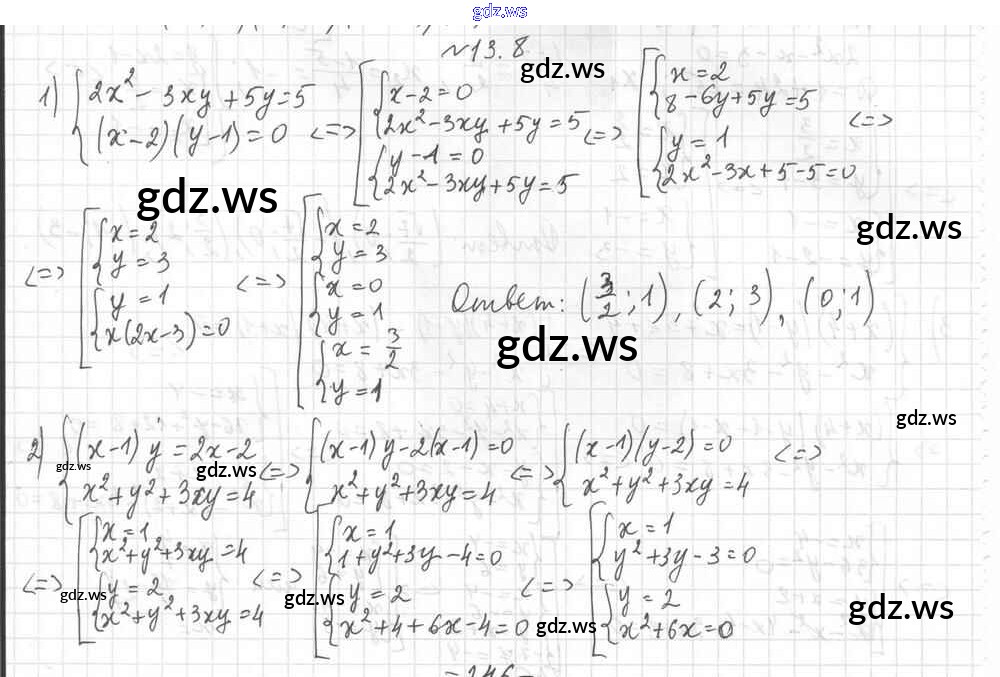 gdz.ws
№13.8
1) { 2x² - 3xy + 5y = 5
(x-2)(y-1) = 0 <=> [ { x-2 = 0
2x² - 3xy + 5y = 5
{ y - 1 = 0
2x² - 3xy + 5y = 5 <=> [ { x = 2
8 - 6y + 5y = 5
{ y = 1
2x² - 3x + 5 - 5 = 0 <=>
gdz.ws
gdz.ws
gdz.ws
<=> [ { x = 2
y = 3
{ y = 1
x(2x-3) = 0 <=> [ { x = 2
y = 3
{ x = 0
y = 1
{ x = 3/2
y = 1
Ответ: (3/2; 1), (2; 3), (0; 1)
gdz.ws
gdz.ws
2) { (x-1)y = 2x-2
x² + y² + 3xy = 4 <=> { (x-1)y - 2(x-1) = 0
x² + y² + 3xy = 4 <=> { (x-1)(y-2) = 0
x² + y² + 3xy = 4 <=>
gdz.ws
gdz.ws
<=> [ { x = 1
x² + y² + 3xy = 4
{ y = 2
x² + y² + 3xy = 4 <=> [ { x = 1
1 + y² + 3y - 4 = 0
{ y = 2
x² + 4 + 6x - 4 = 0 <=> [ { x = 1
y² + 3y - 3 = 0
{ y = 2
x² + 6x = 0
gdz.ws
gdz.ws
gdz.ws
gdz.ws